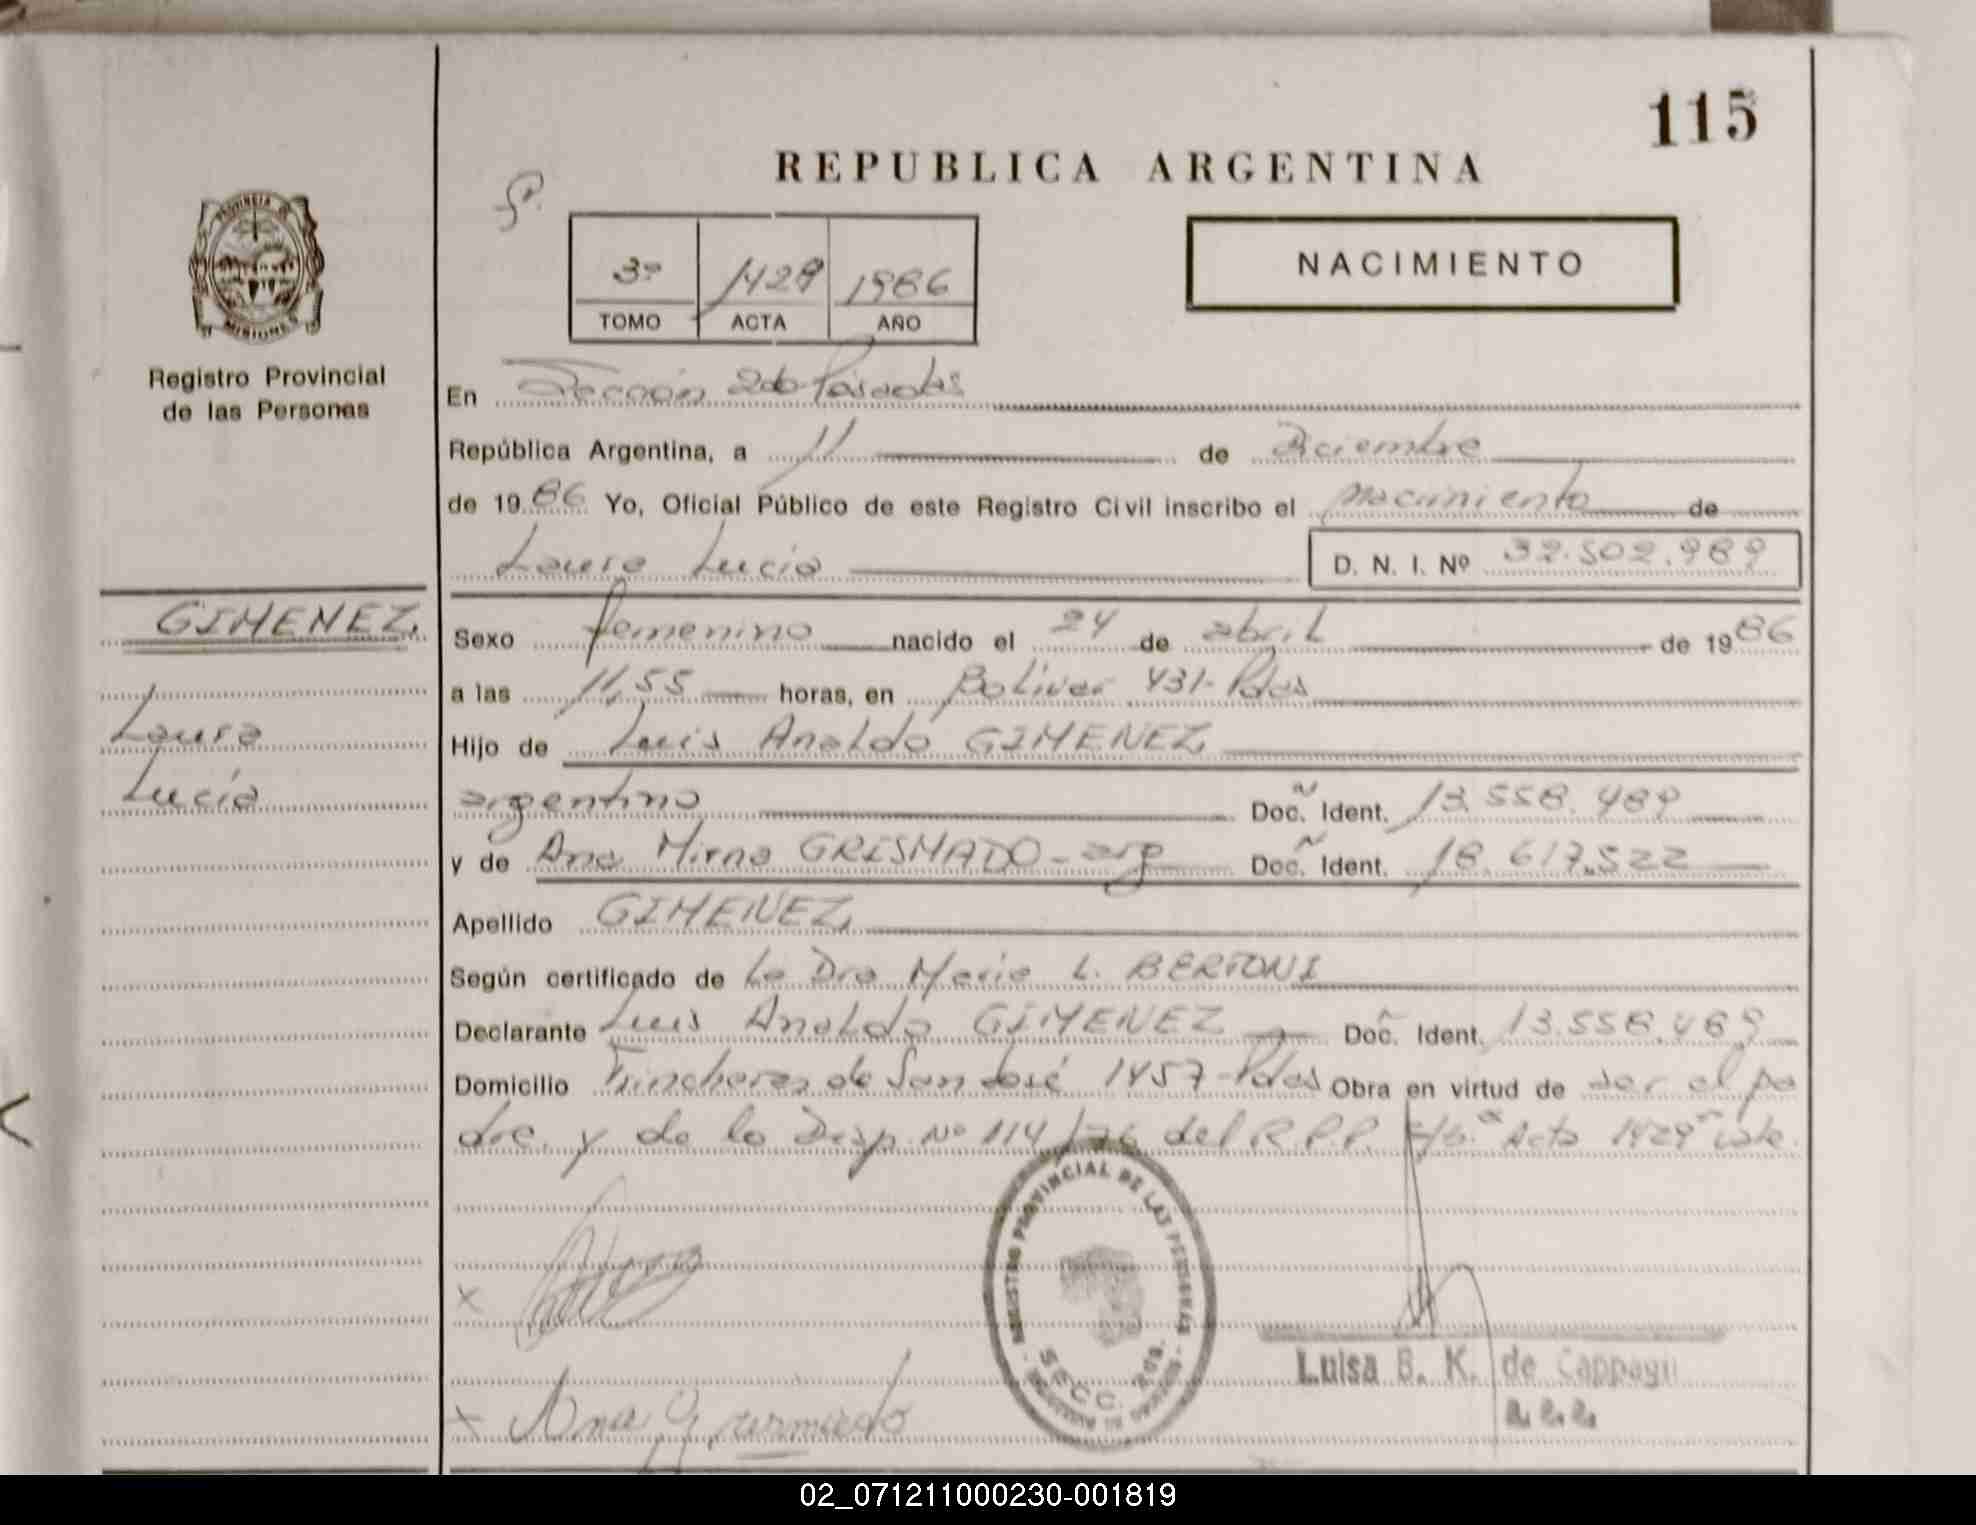 115
REPUBLICA ARGENTINA
PROVINCIA DE
MISIONES
Registro Provincial
de las Personas
3º 1429 1986
TOMO ACTA AÑO
NACIMIENTO
En Sección 2da Posadas
República Argentina, a 11 de Diciembre
de 1986 Yo, Oficial Público de este Registro Civil inscribo el nacimiento de
Laura Lucia D. N. I. Nº 32.502.989
GIMENEZ
Laura
Lucía
Sexo femenino nacido el 24 de abril de 1986
a las 11,55 horas, en Bolivar 431-Pdas
Hijo de Luis Analdo GIMENEZ
argentino Doc. Ident. 13.558.489
y de Ana Mirna GRISMADO-arg Doc. Ident. 18.617.522
Apellido GIMENEZ
Según certificado de La Dra Maria L. BERTONI
Declarante Luis Analdo GIMENEZ Doc. Ident. 13.558.489
Domicilio Trincheras de San José 1457-Pdas Obra en virtud de ser el pa
dre. y de la Disp. Nº 114/76 del R.P.P. Acta 1429
REGISTRO PROVINCIAL DE LAS PERSONAS
SECC. 2da.
Ana Grismado
Luisa B. K. de
02_071211000230-001819